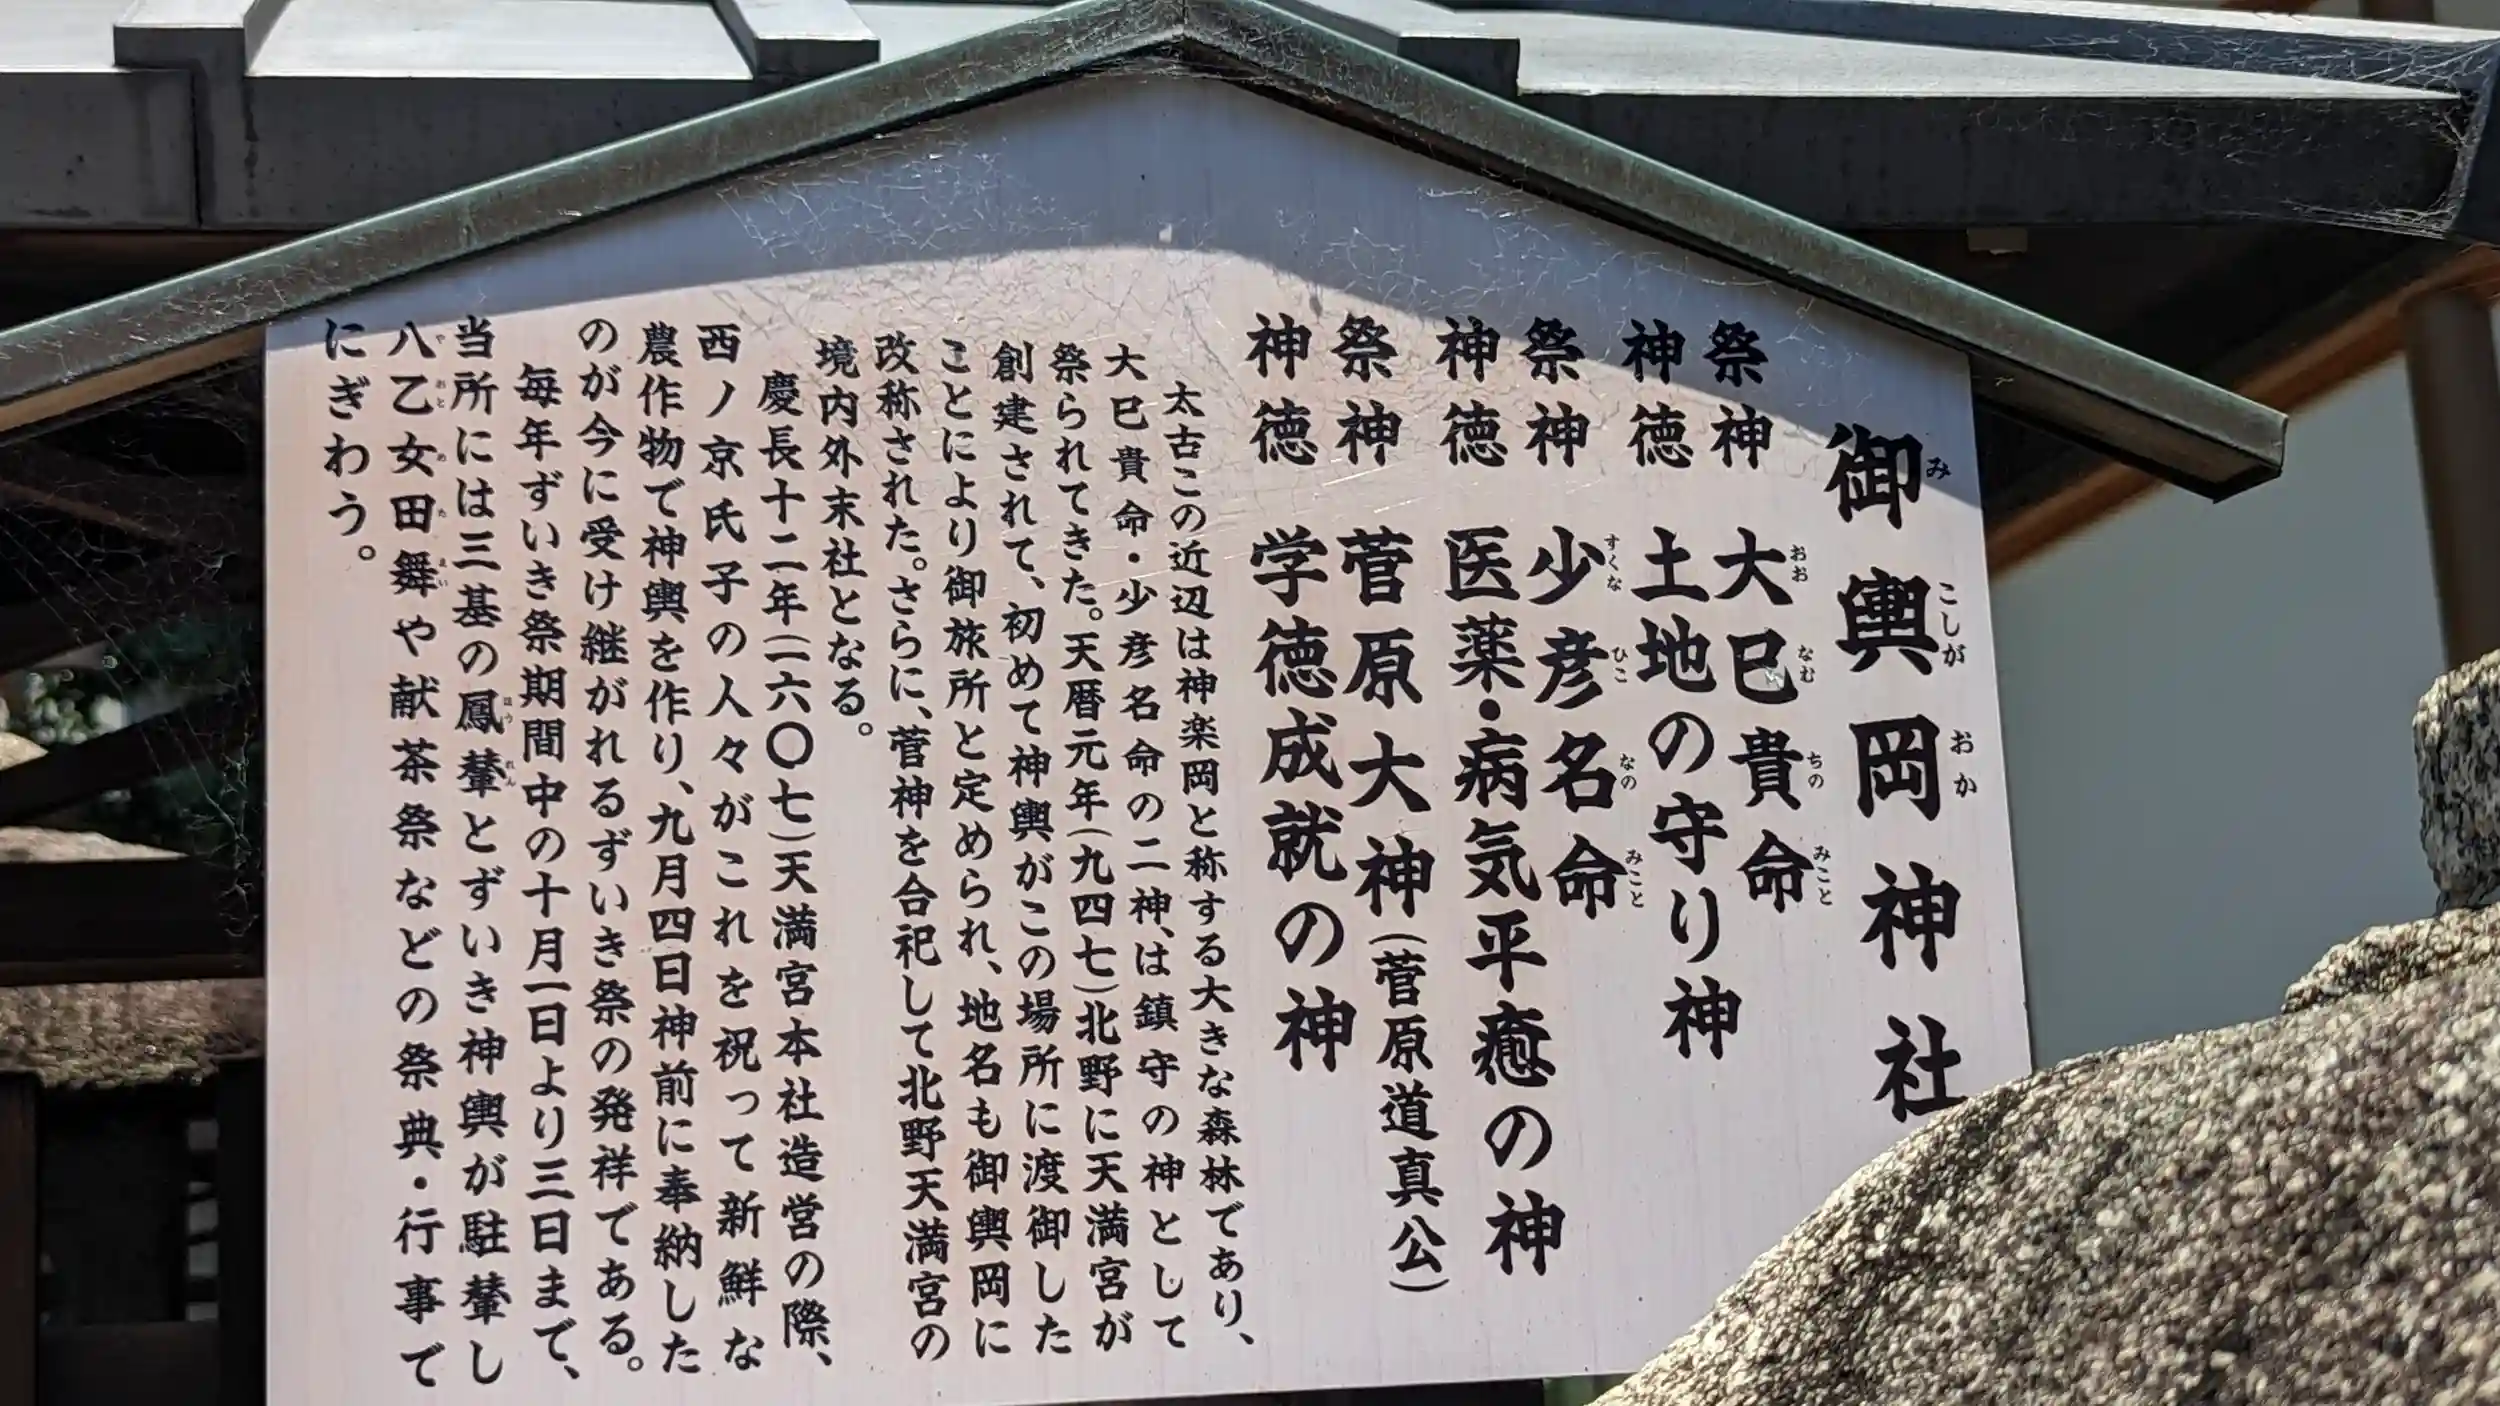 御輿岡神社
みこしがおか
祭神 大巳貴命
おおなむちのみこと
神徳 土地の守り神
祭神 少彦名命
すくなひこなのみこと
神徳 医薬・病気平癒の神
祭神 菅原大神(菅原道真公)
神徳 学徳成就の神
太古この近辺は神楽岡と称する大きな森林であり、
大巳貴命・少彦名命の二神、は鎮守の神として
祭られてきた。天暦元年(九四七)北野に天満宮が
創建されて、初めて神輿がこの場所に渡御した
ことにより御旅所と定められ、地名も御輿岡に
改称された。さらに、菅神を合祀して北野天満宮の
境内外末社となる。
慶長十二年(一六〇七)天満宮本社造営の際、
西ノ京氏子の人々がこれを祝って新鮮な
農作物で神輿を作り、九月四日神前に奉納した
のが今に受け継がれるずいき祭の発祥である。
毎年ずいき祭期間中の十月一日より三日まで、
当所には三基の鳳輦とずいき神輿が駐輦し
ほうれん
八乙女田舞や献茶祭などの祭典・行事で
やおとめたまい
にぎわう。